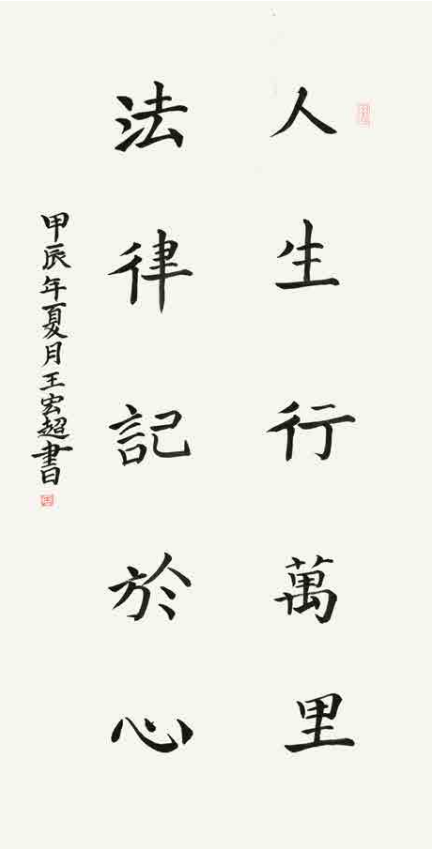 人生行萬里
法律記於心
甲辰年夏月王宏超書